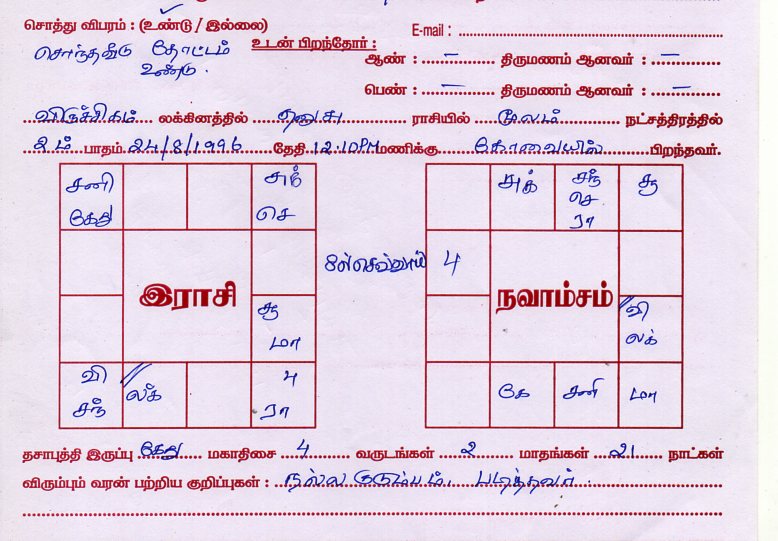 சொத்து விபரம் : (உண்டு / இல்லை) E-mail :
சொந்தவீடு தோட்டம் உண்டு.
உடன் பிறந்தோர் : ஆண் : – திருமணம் ஆனவர் : –
பெண் : – திருமணம் ஆனவர் : –
விருச்சிகம் லக்கினத்தில் தனுசு ராசியில் மூலம் நட்சத்திரத்தில்
2ம் பாதம் 24/8/1996 தேதி 12.10PM மணிக்கு கோவையில் பிறந்தவர்.
சனி கேது
சுக் செ
இராசி
சூ மா
வி சந்
லக்
பு ரா
8ல் செவ்வாய்
சுக்
சந் செ ரா
சூ
பு
நவாம்சம்
வி லக்
கே
சனி
மா
தசாபுத்தி இருப்பு கேது மகாதிசை 4 வருடங்கள் 2 மாதங்கள் 21 நாட்கள்
விரும்பும் வரன் பற்றிய குறிப்புகள் : நல்ல குடும்பம், படித்தவர்.